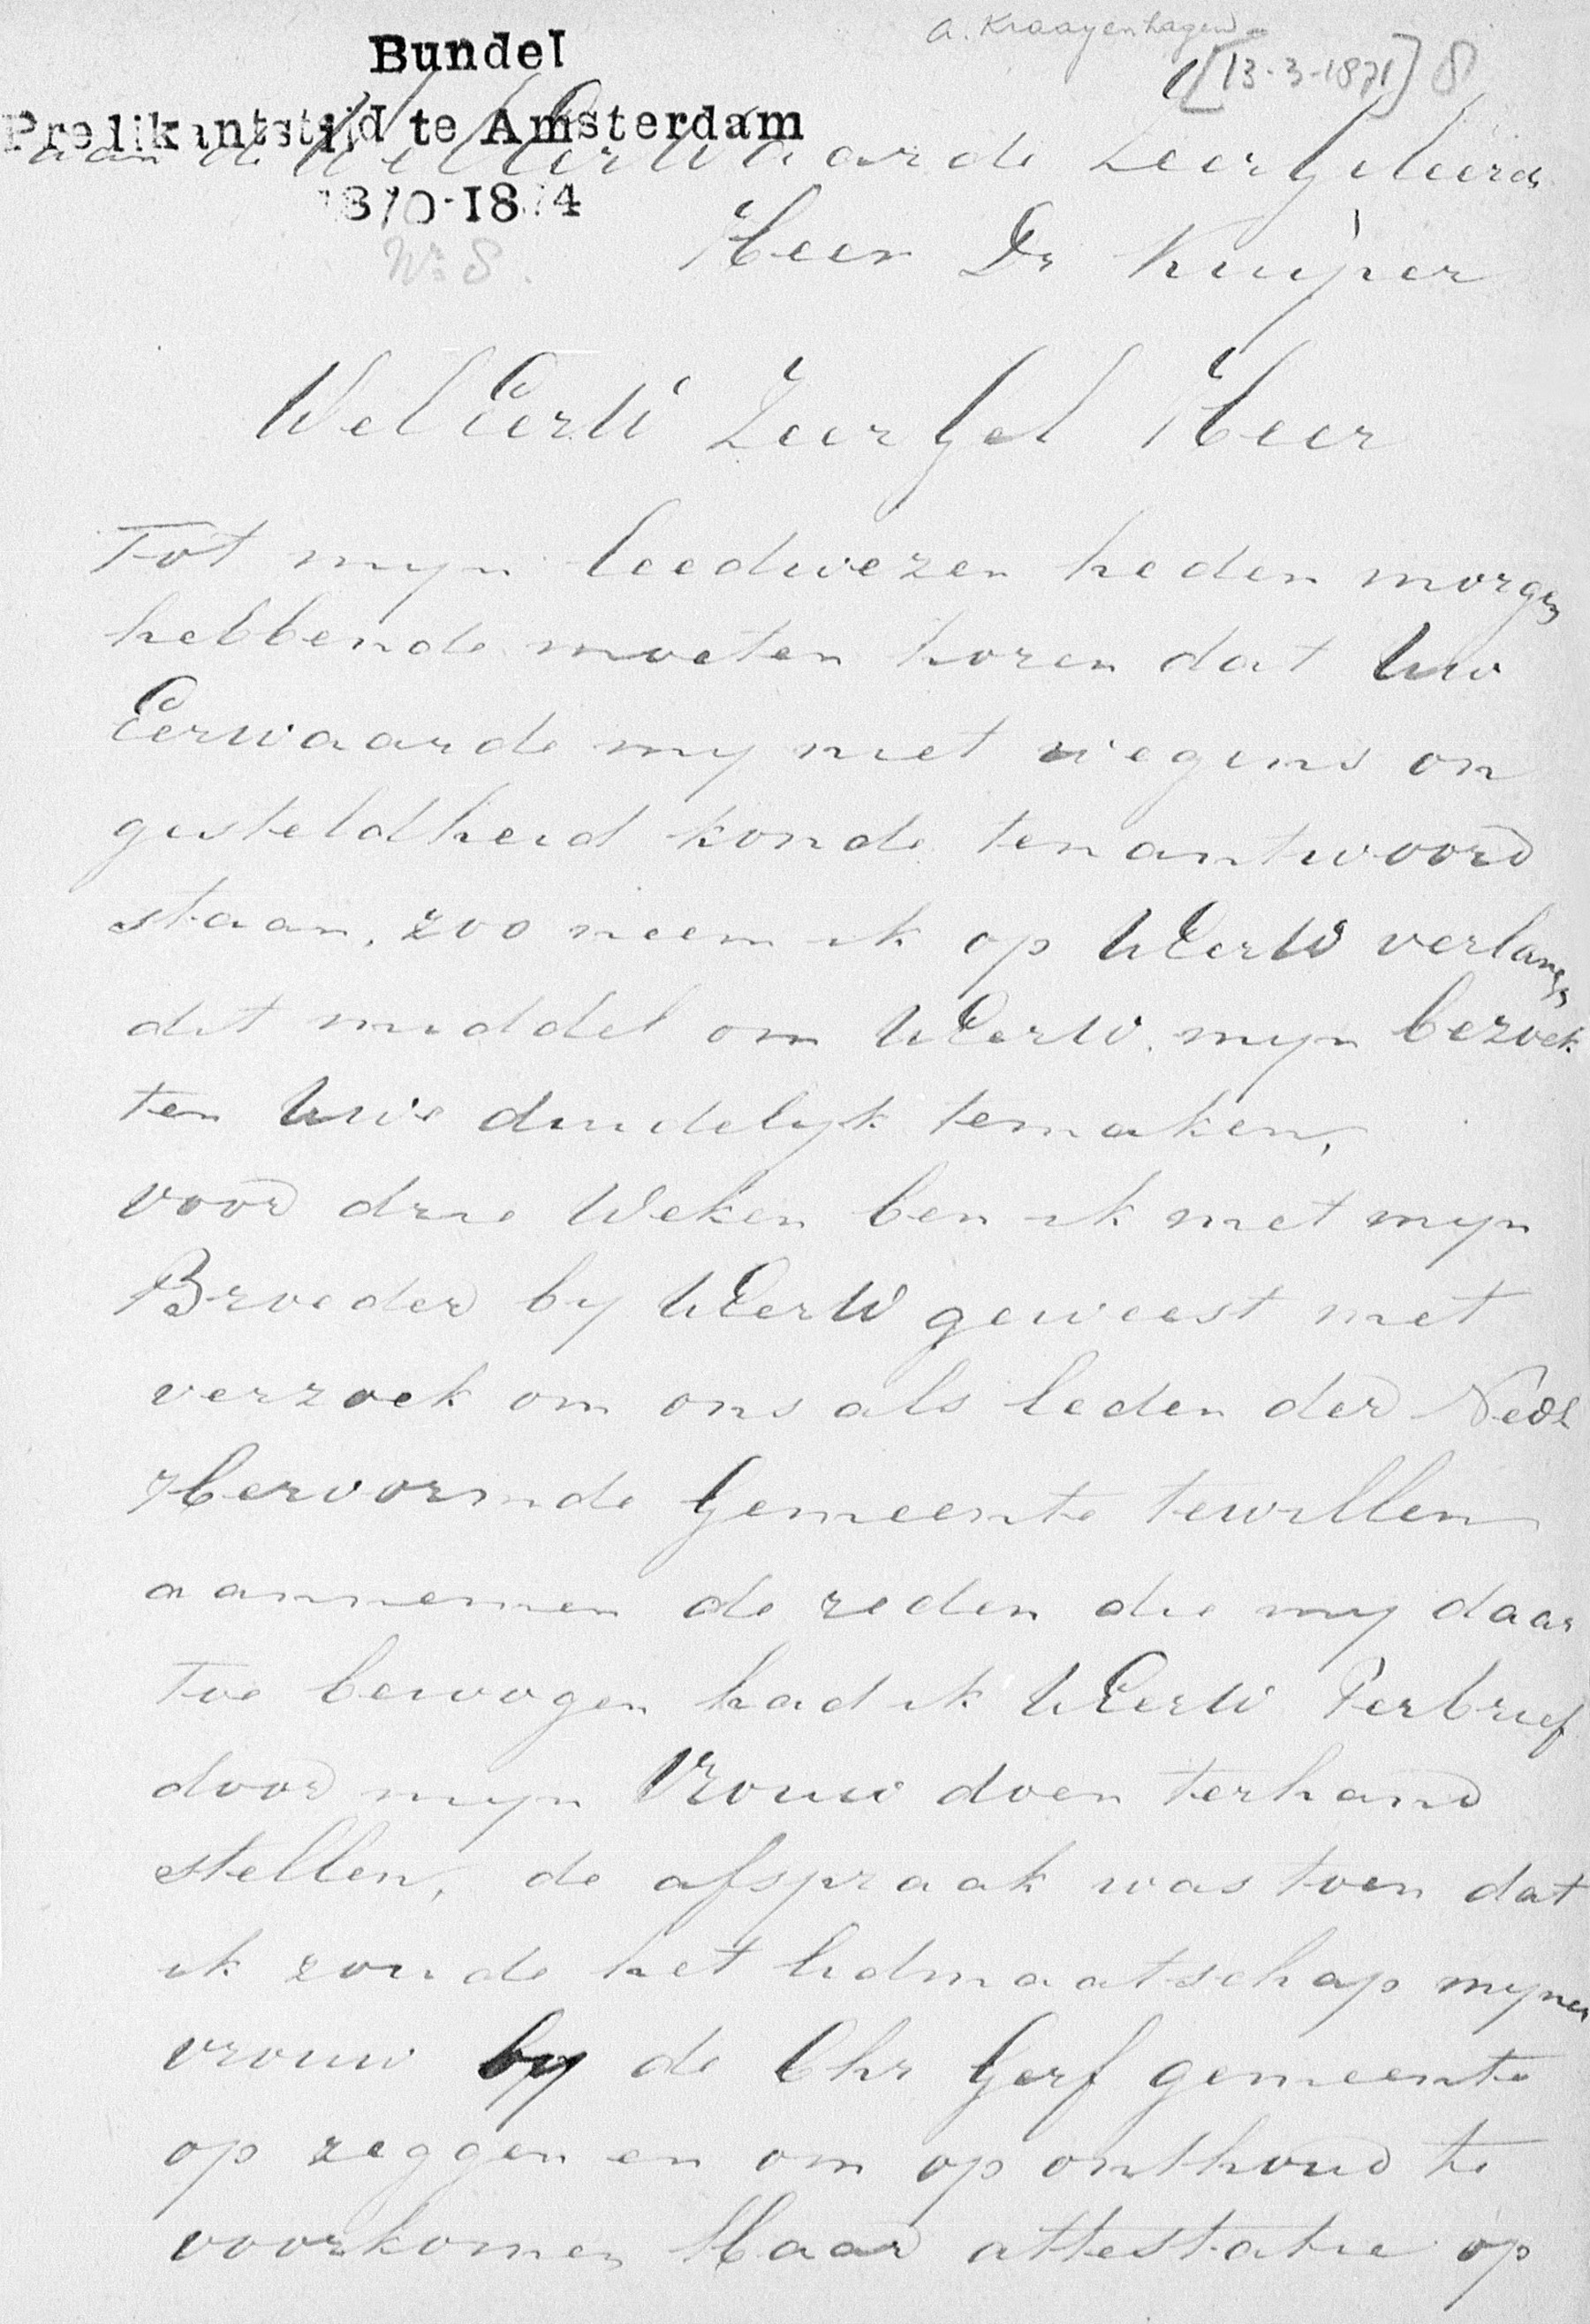 a. Kraayenhagen
[13-3-1871] 8
Bundel
Predikantstijd te Amsterdam
1870-1874
No 8.
aan de WelEerWaarde Zeer Geleerde
Heer Dr Kuijper
WelEerW Zeer Gel Heer
Tot myn leedwezen heden morgen
hebbende moeten horen dat Uw
Eerwaarde my niet wegens on
gesteldheid konde tenantwoord
staan, zoo neem ik op UEerW verlangen
dit middel om UEerW. myn bezoek
ten Uwe duidelyk temaken,
voor drie Weken ben ik met myn
Broeder by UEerW geweest met
verzoek om ons als leden der Nedl
Hervormde Gemeente tewillen
aannemen de reden die my daar
toe bewogen had ik UEerW Perbrief
door myn Vrouw doen terhand
stellen, de afspraak was toen dat
ik zoude het lidmaatschap myner
vrouw by de Chr Gerf gemeente
op zeggen en om op onthoud te
voorkomen Haar attestatie op